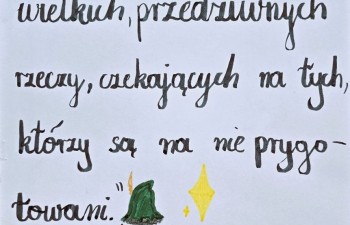 wielkich, przedziwnych
rzeczy, czekających na tych,
którzy są na nie prygo-
towani."